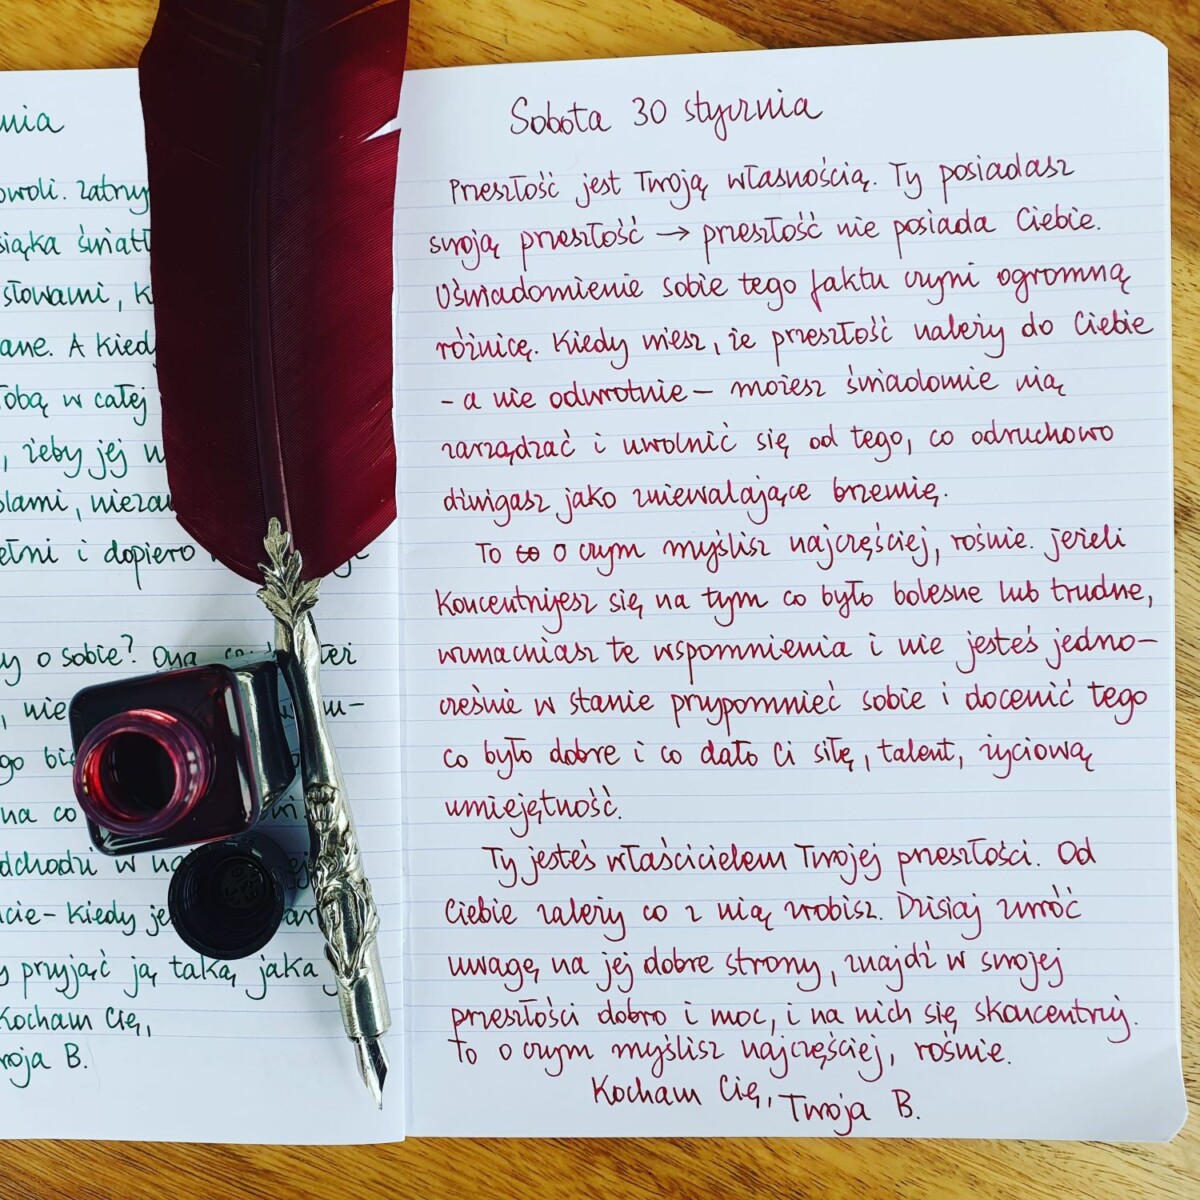 nia
owoli.
siąka
słowami,
ane. A
obą w całej
, żeby jej
olami,
ełni i dopiero
y o sobie? Ona
, nie
go
na co
w
cie – kiedy
y przyjąć ją taką, jaka
Kocham Cię,
woja B.
Sobota 30 stycznia
Przeszłość jest Twoją własnością. Ty posiadasz
swoją przeszłość → przeszłość nie posiada Ciebie.
Uświadomienie sobie tego faktu czyni ogromną
różnicę. Kiedy wiesz, że przeszłość należy do Ciebie
– a nie odwrotnie – możesz świadomie nią
zarządzać i uwolnić się od tego, co odruchowo
dźwigasz jako zniewalające brzemię.
To to o czym myślisz najczęściej, rośnie. Jeżeli
koncentrujesz się na tym co było bolesne lub trudne,
wzmacniasz te wspomnienia i nie jesteś jedno–
cześnie w stanie przypomnieć sobie i docenić tego
co było dobre i co dało Ci siłę, talent, życiową
umiejętność.
Ty jesteś właścicielem Twojej przeszłości. Od
Ciebie zależy co z nią zrobisz. Dzisiaj zwróć
uwagę na jej dobre strony, znajdź w swojej
przeszłości dobro i moc, i na nich się skoncentruj.
To o czym myślisz najczęściej, rośnie.
Kocham Cię, Twoja B.